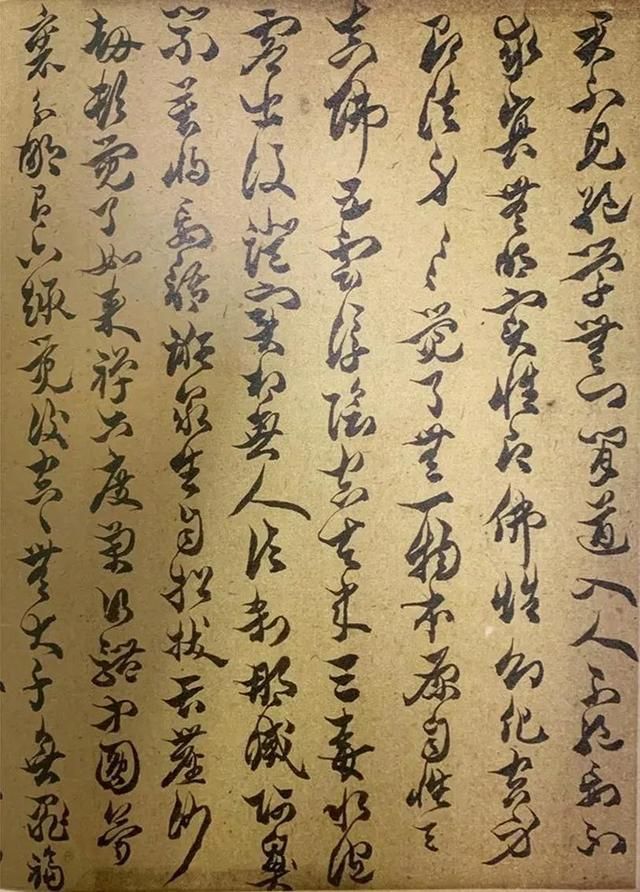 君不見絕學無為閒道人不除妄不
求真無明實性即佛性幻化空身
即法身〻〻覺了無一物本原自性天
真佛五雲浮陰空去來三毒水泡
虛出沒證實相無人法剎那滅阿鼻
業若將妄語誑眾生自招拔舌塵沙
劫頓覺了如來禪六度萬行體中圓夢
裏明六趣覺後空〻無大千無罪福